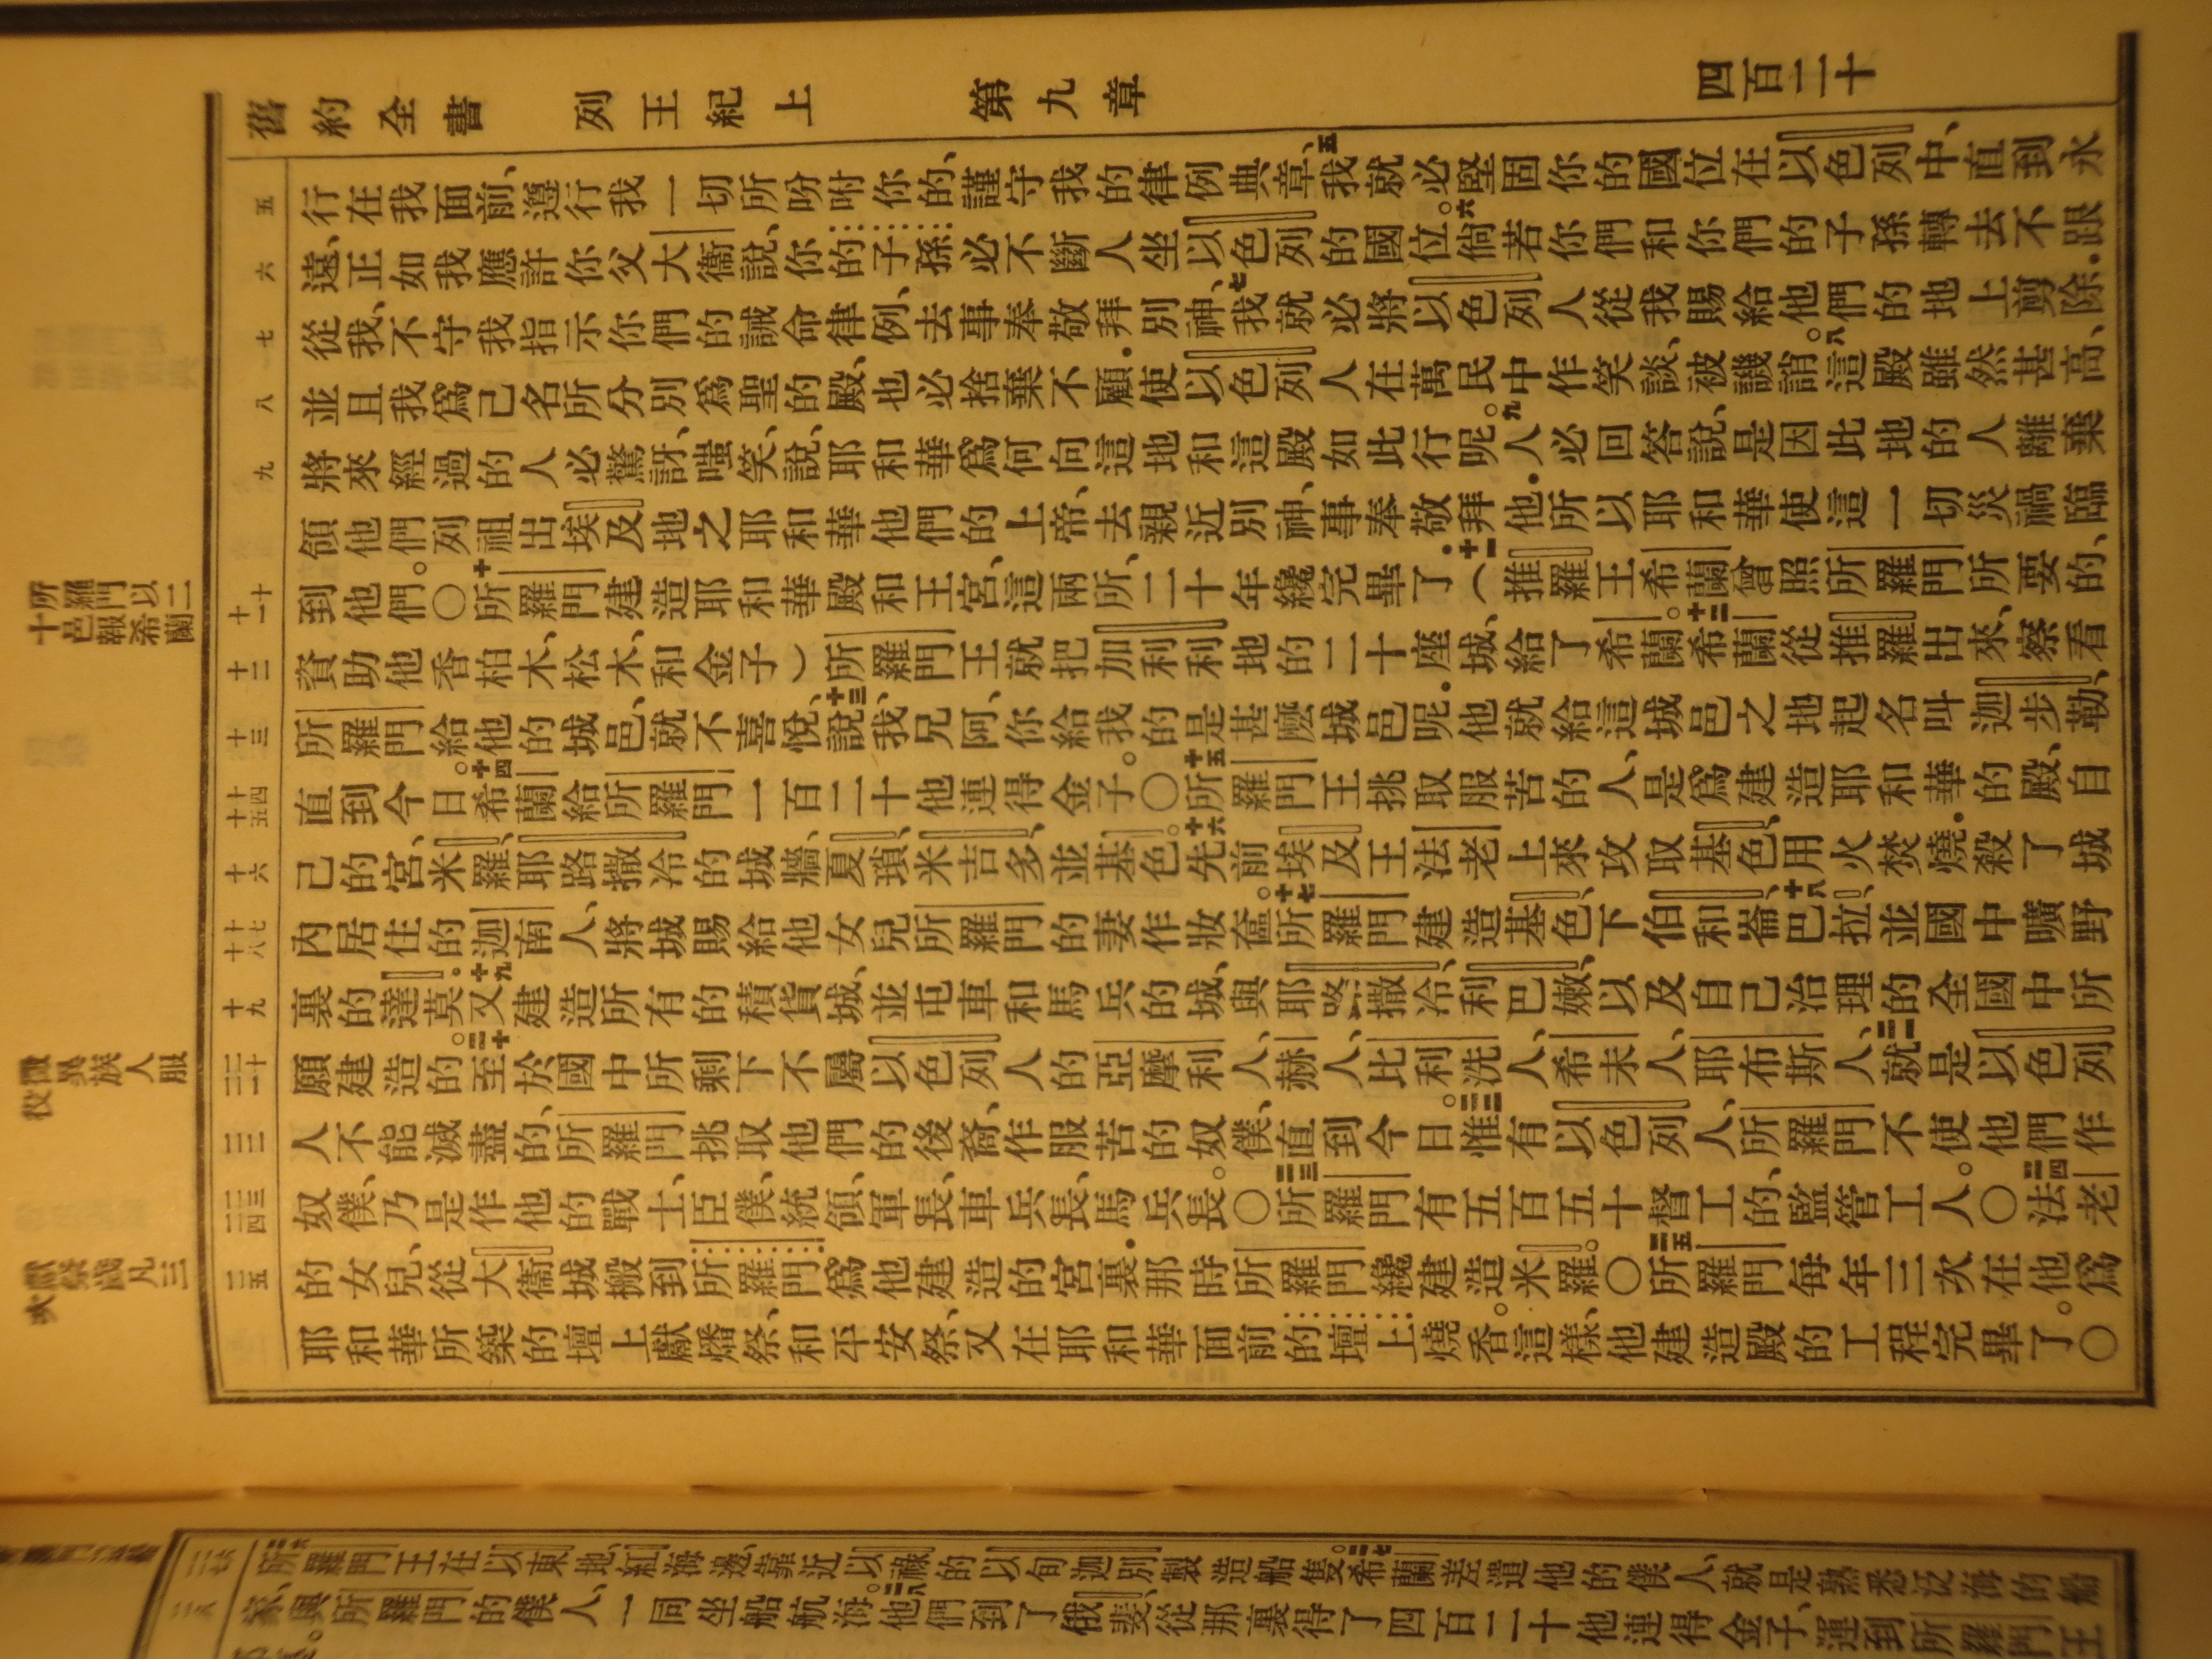 舊約全書 列王紀上 第九章 四百二十
五
行在我面前、遵行我一切所吩咐你的、謹守我的律例典章、五我就必堅固你的國位在以色列中、直到永
六
遠、正如我應許你父大衞說、你的子孫必不斷人坐以色列的國位。六倘若你們和你們的子孫轉去不跟
七
從我、不守我指示你們的誡命律例、去事奉敬拜別神、七我就必將以色列人從我賜給他們的地上剪除．
八
並且我爲己名所分別爲聖的殿、也必捨棄不顧．使以色列人在萬民中作笑談、被譏誚。八這殿雖然甚高、
九
將來經過的人必驚訝、嗤笑、說、耶和華爲何向這地和這殿如此行呢。九人必回答說、是因此地的人離棄
領他們列祖出埃及地之耶和華他們的上帝、去親近別神、事奉敬拜他．所以耶和華使這一切災禍臨
十 十一
到他們。〇十所羅門建造耶和華殿和王宮、這兩所、二十年纔完畢了．十一（推羅王希蘭曾照所羅門所要的、
十二
資助他香柏木、松木、和金子）所羅門王就把加利利地的二十座城、給了希蘭。十二希蘭從推羅出來、察看
十三
所羅門給他的城邑、就不喜悅、十三說、我兄阿、你給我的是甚麽城邑呢．他就給這城邑之地起名叫迦步勒、
十四 十五
直到今日。十四希蘭給所羅門一百二十他連得金子。〇十五所羅門王挑取服苦的人、是爲建造耶和華的殿、自
十六
己的宮、米羅、耶路撒冷的城牆、夏瑣、米吉多、並基色。十六先前埃及王法老上來攻取基色、用火焚燒．殺了城
十七 十八
內居住的迦南人、將城賜給他女兒所羅門的妻作妝奩。十七所羅門建造基色、下伯和崙、十八巴拉、並國中曠野
十九
裏的達莫．十九又建造所有的積貨城、並屯車和馬兵的城、與耶路撒冷、利巴嫩、以及自己治理的全國中所
二十 二一
願建造的。二十至於國中所剩下不屬以色列人的亞摩利人、赫人、比利洗人、希未人、耶布斯人、二一就是以色列
二二
人不能滅盡的、所羅門挑取他們的後裔、作服苦的奴僕、直到今日。二二惟有以色列人、所羅門不使他們作
二三 二四
奴僕、乃是作他的戰士、臣僕、統領、軍長、車兵長、馬兵長。〇二三所羅門有五百五十督工的、監管工人。〇二四法老
二五
的女兒、從大衞城搬到所羅門爲他建造的宮裏．那時所羅門纔建造米羅。〇二五所羅門每年三次在他爲
耶和華所築的壇上獻燔祭、和平安祭、又在耶和華面前的壇上燒香。這樣、他建造殿的工程完畢了。〇
所羅門以二
十邑報希蘭
徵異族人服
役
獻祭歲凡三
次
二六 二七
二六所羅門王在以東地、紅海邊、靠近以祿的以旬迦別製造船隻。二七希蘭差遣他的僕人、就是熟悉泛海的船
二八
家、與所羅門的僕人、一同坐船航海。二八他們到了俄斐、從那裏得了四百二十他連得金子、運到所羅門王